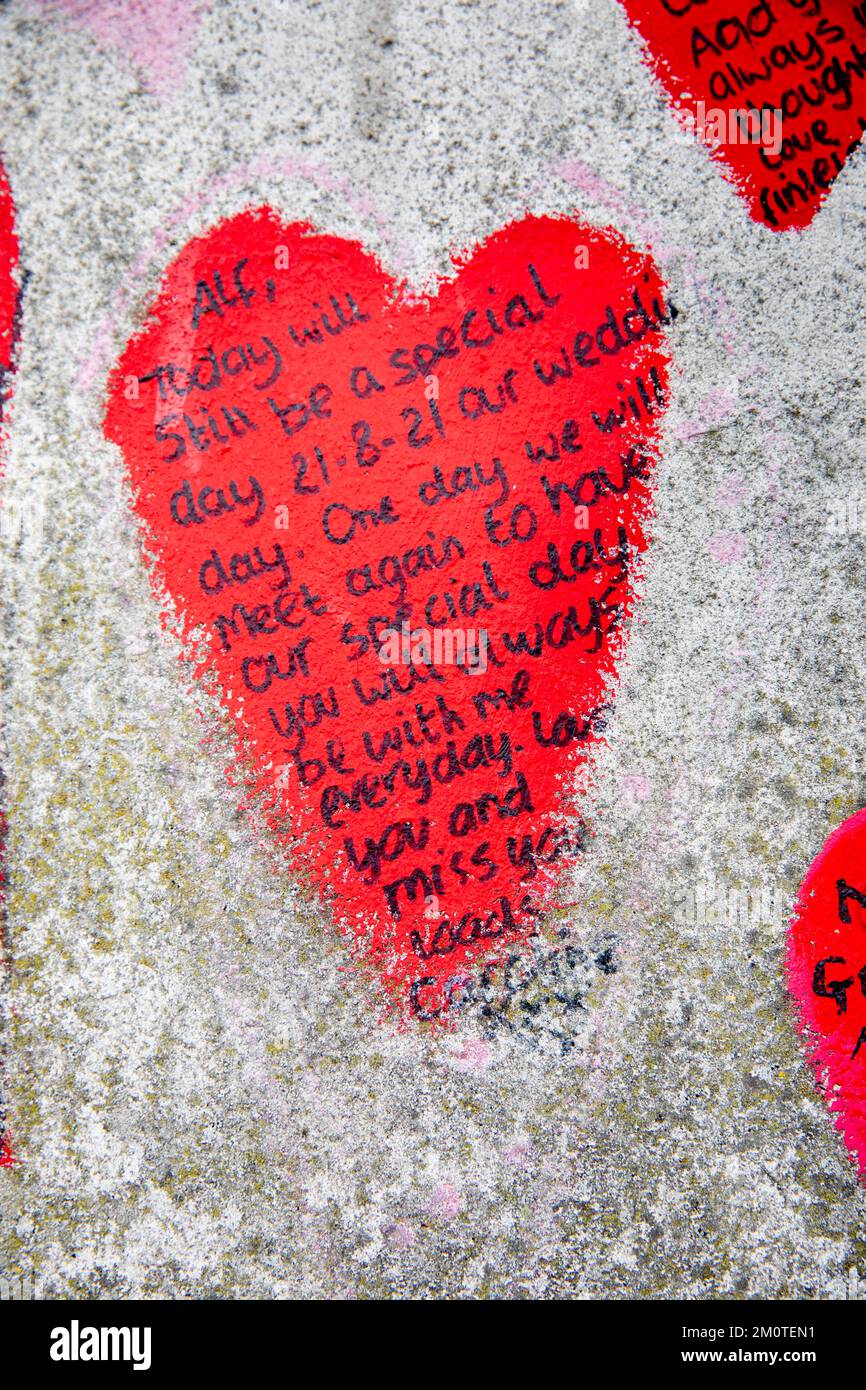 Aady
always
thought
Love
Alf,
Today will
Still be a special
day 21-8-21 our weddi
day. One day we will
Meet again to have
our special day
you will always
be with me
everyday. Love
you and
miss you
loads
Caroline
xxx
alamy
Image ID: 2M0TEN1
www.alamy.com